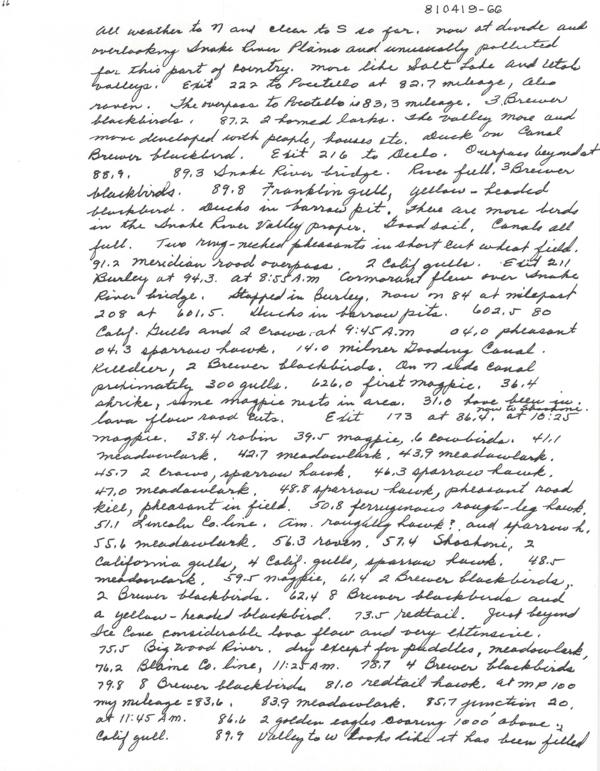 810419-66
All weather to N and clear to S so far. now at divide and
overlooking Snake River Plains and unusually polluted
for this part of country. more like Salt Lake and Utah
valleys. Exit 222 to Pocatello at 82.7 mileage, also
raven. The overpass to Pocatello is 83.3 mileage. 3 Brewer
blackbirds. 87.2 2 horned larks. The valley more and
more developed with people, houses etc. Duck on Canal
Brewer blackbird. Exit 216 to Declo. Overpass beyond at
88.9. 89.3 Snake River bridge. River full. 3 Brewer
blackbirds. 89.8 Franklin gull, yellow-headed
blackbird. Ducks in barrow pit. There are more birds
in the Snake River Valley proper. Good soil. Canals all
full. Two ring-necked pheasants in short cut wheat field.
91.2 meridian road overpass. 2 Calif gulls. Exit 211
Burley at 94.3. at 8:55 A.M Cormorant flew over Snake
River bridge. Stopped in Burley, now on 84 at milepost
208 at 601.5. Ducks in barrow pits. 602.5 80
Calif. Gulls and 2 crows. at 9:45 A.M 04.0 pheasant
04.3 sparrow hawk. 14.0 Milner Gooding Canal.
Killdeer, 2 Brewer blackbirds. On N side canal
proximately 300 gulls. 626.0 first magpie. 36.4
shrike, some magpie nests in area. 31.0 have been in
lava flow road cuts. Exit 173 at 36.4, at 10:25
now to Shoshoni.
magpie. 38.4 robin 39.5 magpie, 6 cowbirds. 41.1
meadowlark. 42.7 meadowlark. 43.9 meadowlark.
45.7 2 crows, sparrow hawk. 46.3 sparrow hawk.
47.0 meadowlark. 48.8 sparrow hawk, pheasant road
kill, pheasant in field. 50.8 ferruginous rough-leg hawk.
51.1 Lincoln Co. line. Am. roughleg hawk? and sparrow h.
55.6 meadowlark. 56.3 raven. 57.4 Shoshoni, 2
California gulls, 4 Calif. gulls, sparrow hawk. 48.5
meadowlark. 59.5 magpie, 61.4 2 Brewer blackbirds,
2 Brewer blackbirds. 62.4 8 Brewer blackbirds and
a yellow-headed blackbird. 73.5 redtail. Just beyond
Ice Cave considerable lava flow and very extensive.
75.5 Big Wood River. dry except for puddles, meadowlark,
76.2 Blaine Co. line, 11:25 A.M. 78.7 4 Brewer blackbirds
79.8 8 Brewer blackbirds 81.0 redtail hawk. at MP 100
my mileage = 83.6. 83.9 meadowlark. 85.7 junction 20.
at 11:45 A.M. 86.6 2 golden eagles soaring 1000' above
Calif gull. 89.9 Valley to W looks like it has been filled